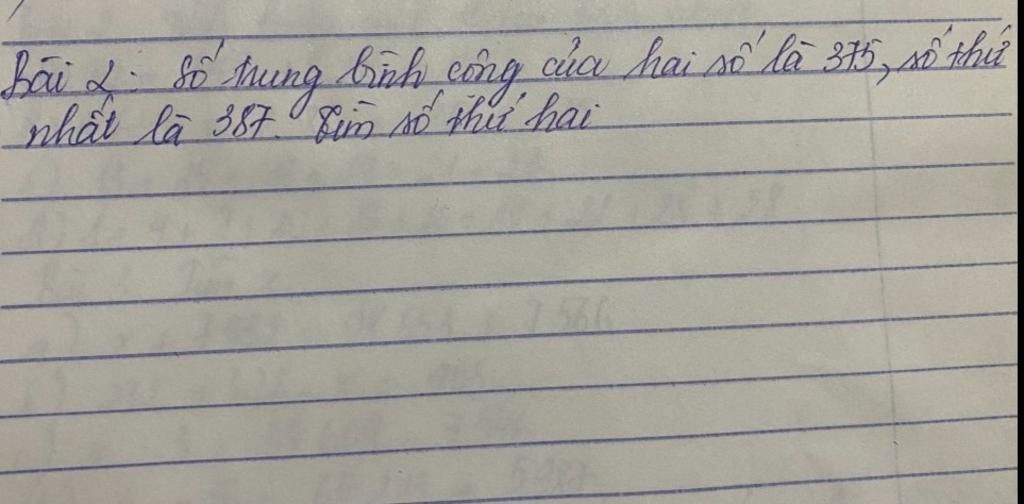 Bài 2: Số trung bình cộng của hai số là 375, số thứ
nhất là 387. Tìm số thứ hai